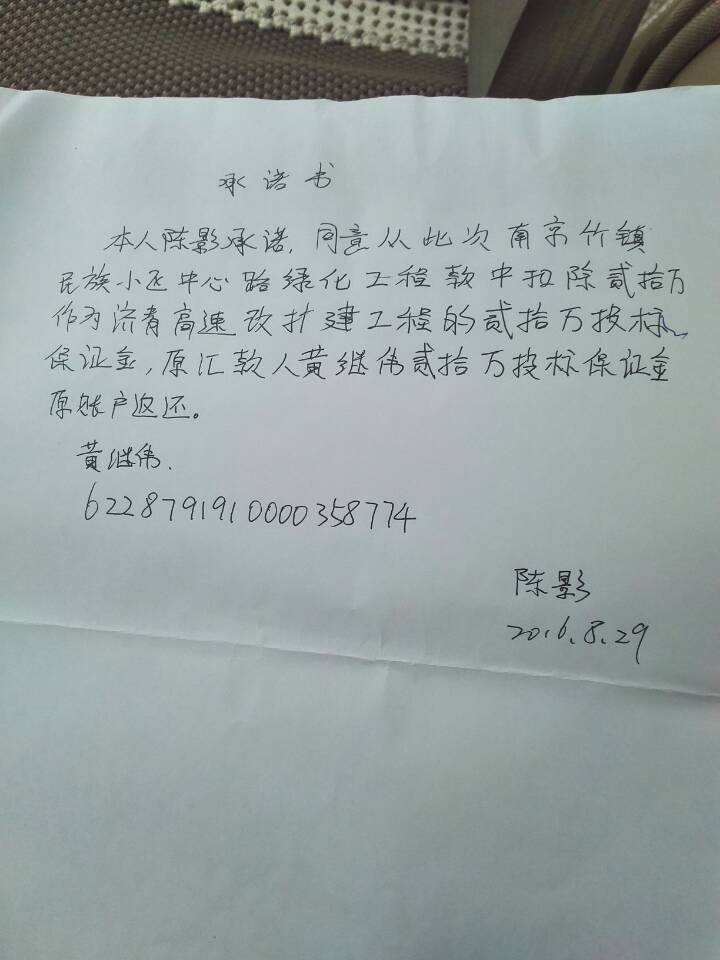 承诺书
本人陈影承诺,同意从此次南京竹镇
民族小区中心路绿化工程款中扣除贰拾万
作为济青高速改扩建工程的贰拾万投标
保证金,原汇款人黄继伟贰拾万投标保证金
原账户返还。
黄继伟.
6228791910000358774
陈影
2016.8.29